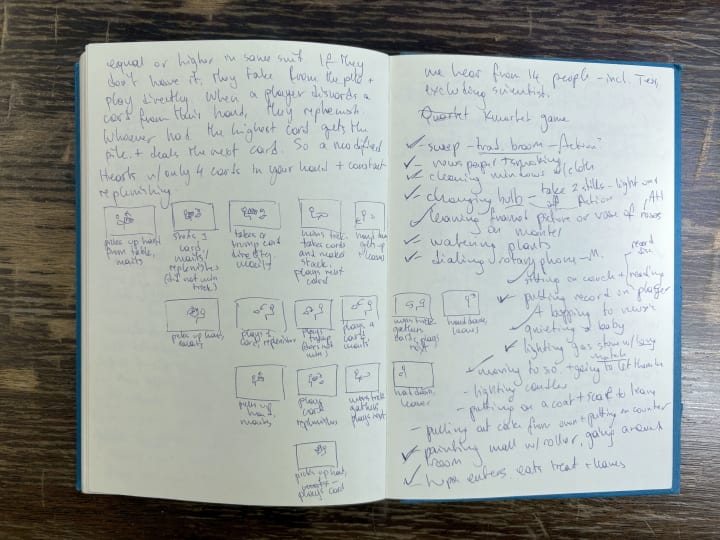 equal or higher in same suit. If they
don't have it, they take from the pile +
play directly. When a player discards a
card from their hand, they replenish.
Whoever had the highest card gets the
pile + deals the next card. So a modified
Hearts w/ only 4 cards in your hand + constant
replenishing.
picks up hand
from table,
waits
shots 1
card,
waits/
replenishes
(did not win
trick)
takes a
trump card
directly,
waits
wins trick,
takes cards
and makes
stack.
plays next
card
hand done
gets up
+ leaves
picks up hand,
waits
plays 1
card, replenishes
plays
trump
(does not
win)
plays a
card
waits
wins trick
gathers
cards, plays
next
hand done,
leaves
picks up
hand,
waits
plays
card
replenishes
wins trick
gathers
plays next
hand done,
leaves
picks up hand,
plays card
we hear from 14 people - incl. Tess,
excluding scientist.
Quartet Kwartet game
sweep - trad. broom - Action?
newspaper + smoking
cleaning windows w/ cloth
changing bulb - take 2 stills - light on and
off Action
cleaning framed picture or vase of roses
on mantel AH
watering plants
dialing rotary phone - M.
sitting on couch + reading
record
putting record on player
bopping to music
quieting a baby
lighting gas stove w/ long
match
moving to so + going to let them in
- lighting candles
- putting on a coat + scarf to leave
- pulling out cake from oven + putting on counter
painting wall w/ roller, going around
room
enters eats treat + leaves